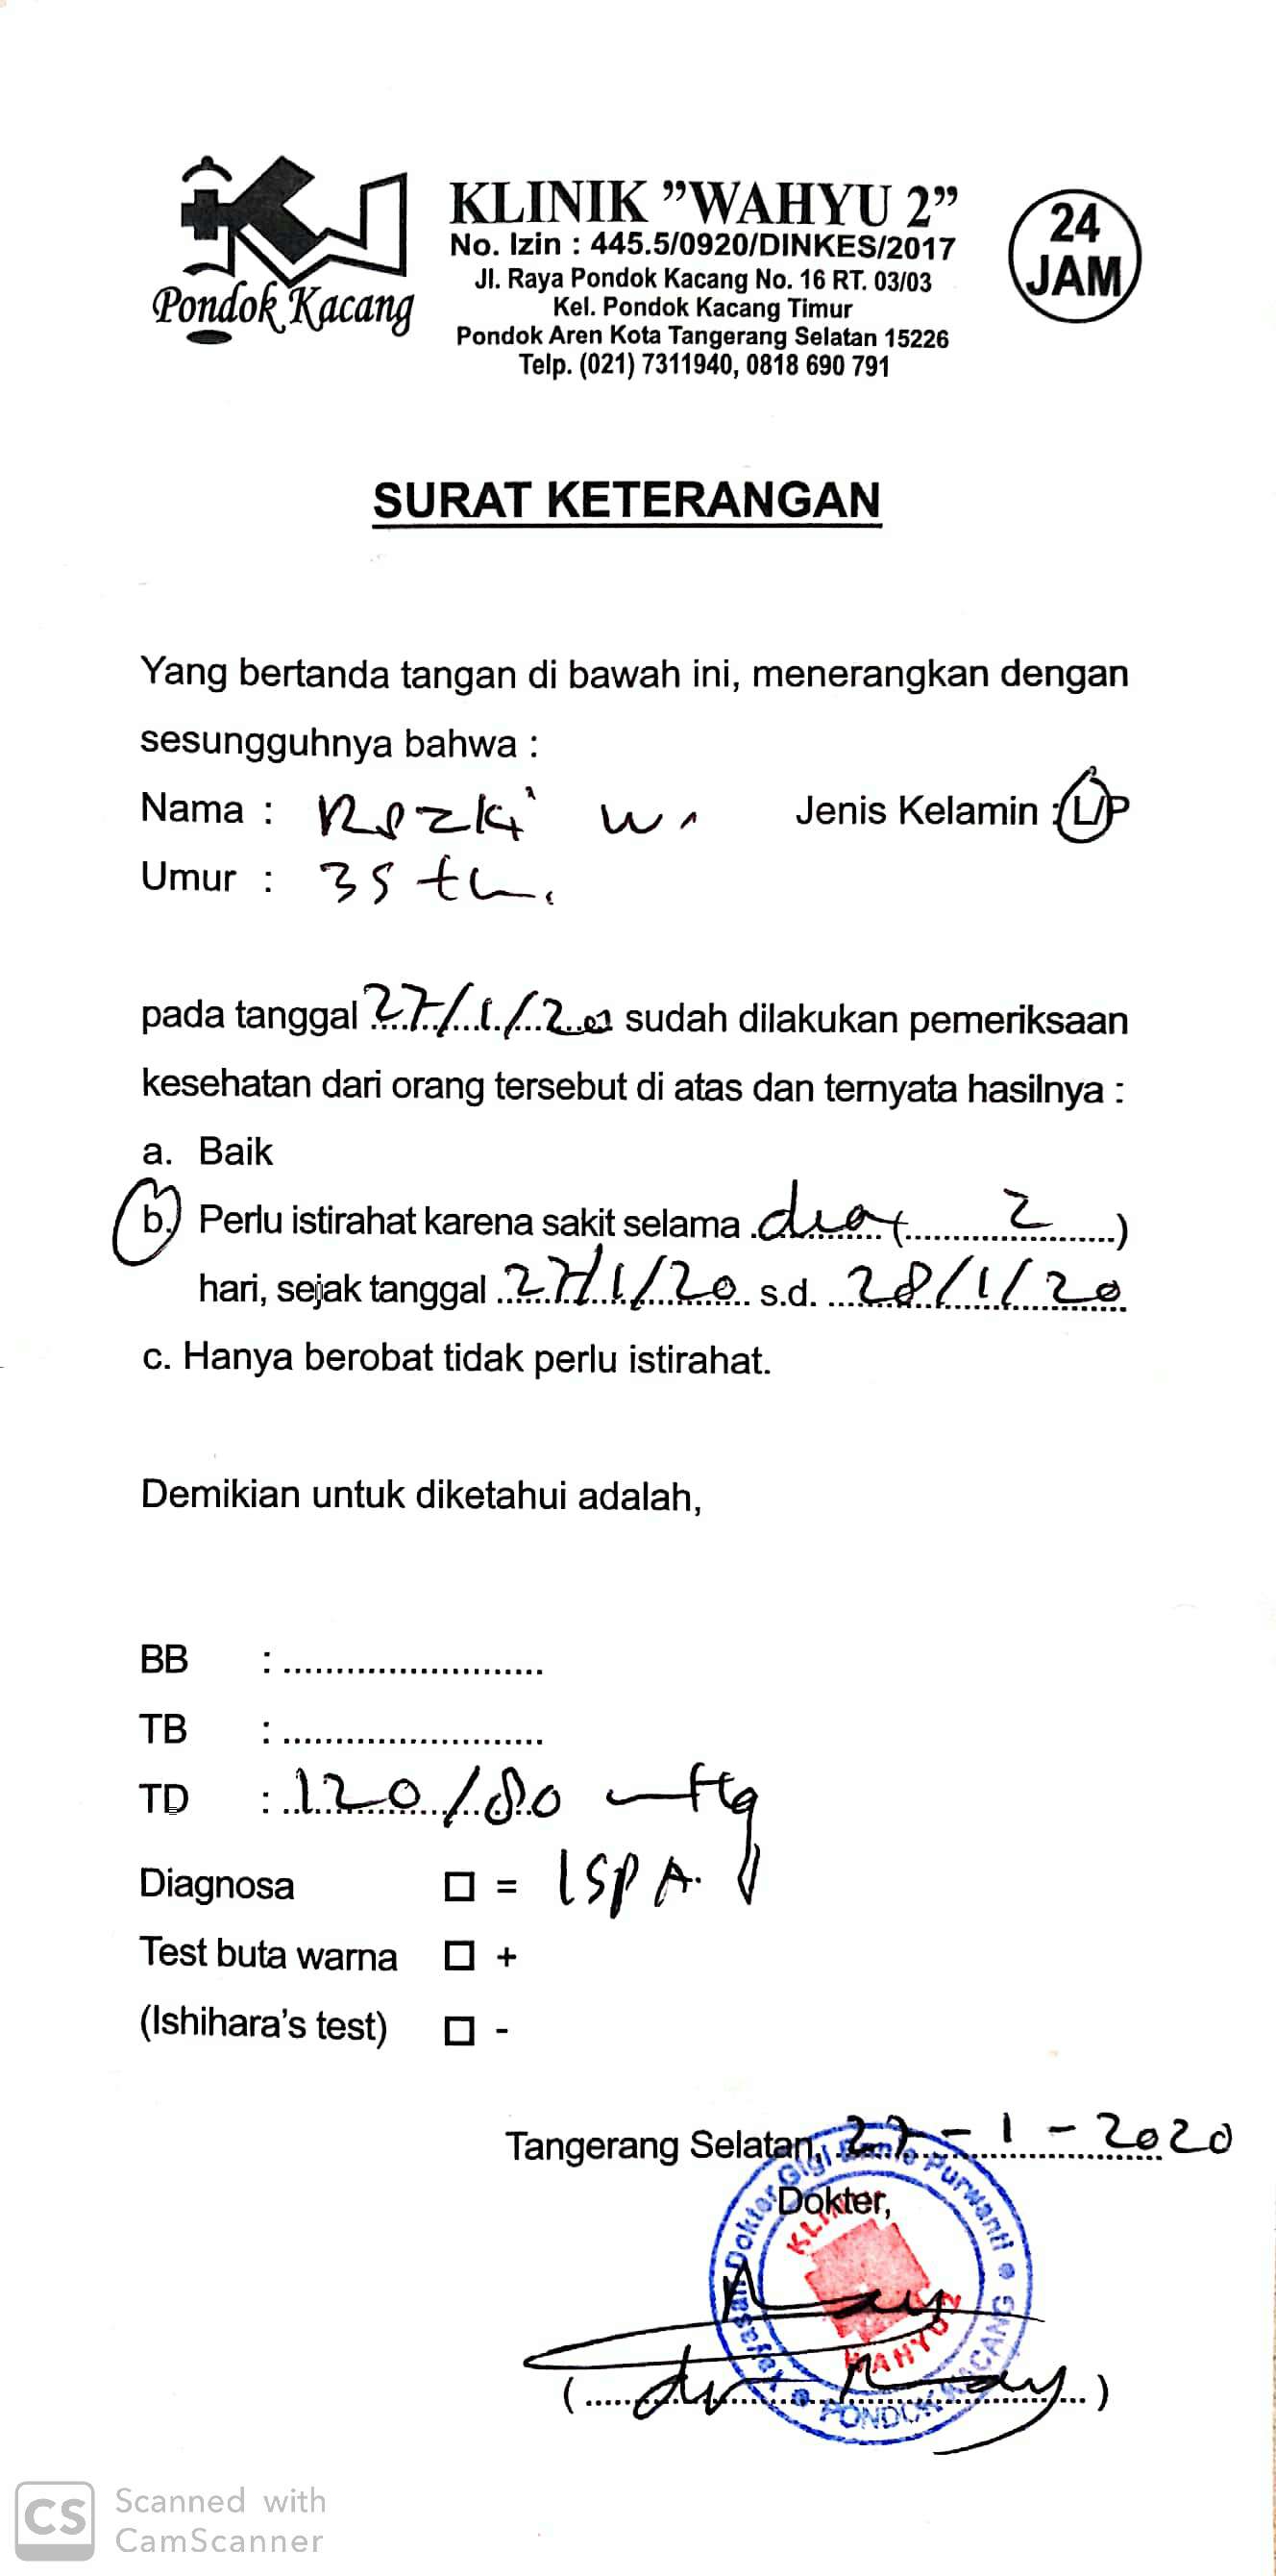 Pondok Kacang
KLINIK ”WAHYU 2”
No. Izin : 445.5/0920/DINKES/2017
Jl. Raya Pondok Kacang No. 16 RT. 03/03
Kel. Pondok Kacang Timur
Pondok Aren Kota Tangerang Selatan 15226
Telp. (021) 7311940, 0818 690 791
24
JAM
SURAT KETERANGAN
Yang bertanda tangan di bawah ini, menerangkan dengan
sesungguhnya bahwa :
Nama : W. Jenis Kelamin : L/P
Umur : 35 th.
pada tanggal 27/1/20 sudah dilakukan pemeriksaan
kesehatan dari orang tersebut di atas dan ternyata hasilnya :
a. Baik
b. Perlu istirahat karena sakit selama dua (2)
hari, sejak tanggal 27/1/20 s.d. 28/1/20
c. Hanya berobat tidak perlu istirahat.
Demikian untuk diketahui adalah,
BB :
TB :
TD : 120/80 mmHg
Diagnosa = ISPA.
Test buta warna +
(Ishihara's test) -
Tangerang Selatan, 27-1-2020
Dokter,
Yayasan Dokter Gigi Purwanti
KLINIK
WAHYU 2
PONDOK KACANG
(dr )
CS
Scanned with
CamScanner